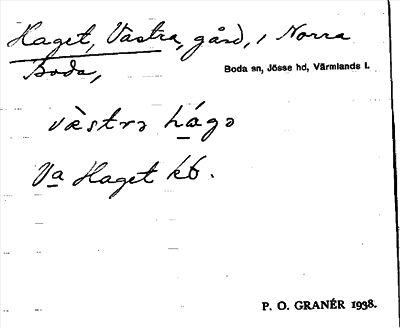 Haget, Västra, gård, i Norra
Boda,
Boda sn, Jösse hd, Värmlands l.
västrə hágə
Va Haget kb.
P. O. GRANÉR 1938.